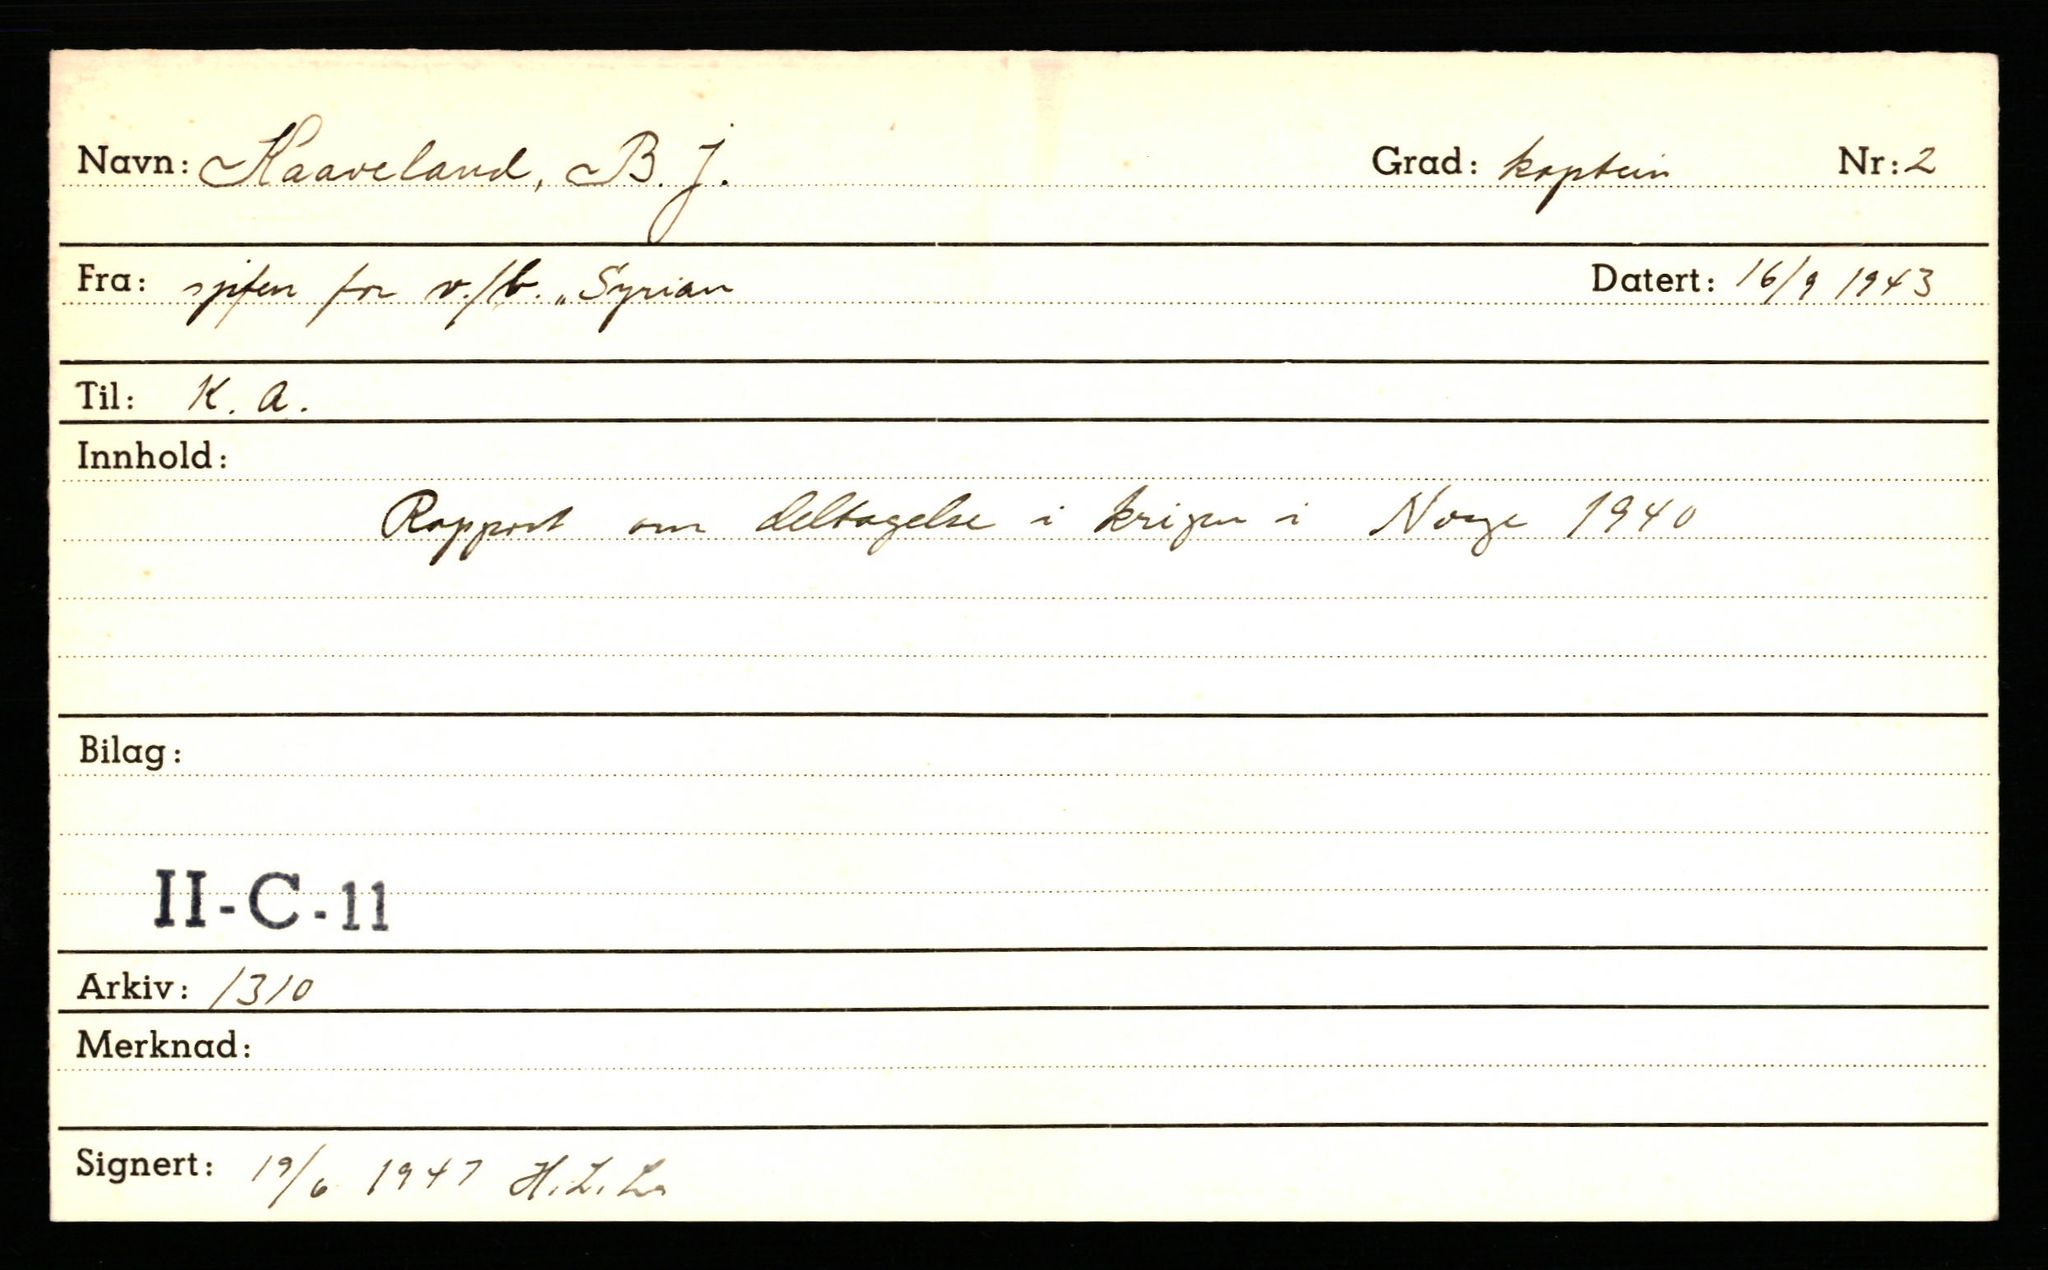 Navn: Kaaveland, B. J. Grad: kaptein Nr: 2
Fra: sjefen for v/b. „Syrian Datert: 16/9 1943
Til: K. A.
Innhold:
Rapport om deltagelse i krigen i Norge 1940
Bilag:
II-C-11
Arkiv: 1310
Merknad:
Signert: 19/6 1947 H. L.